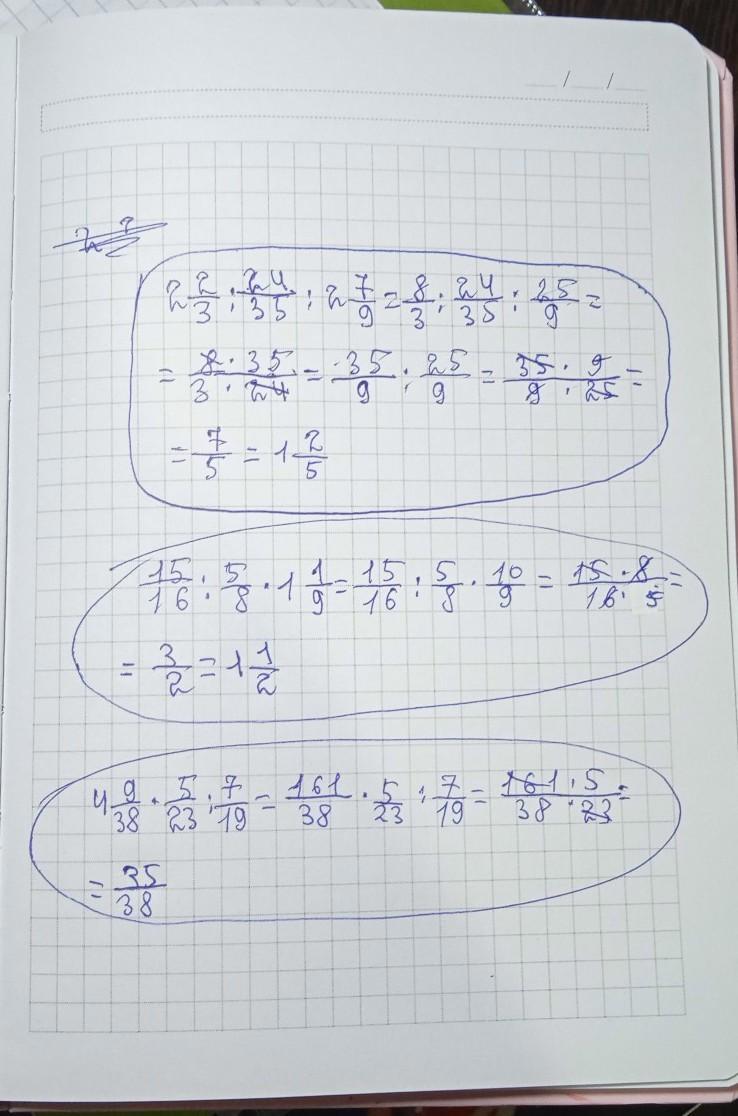 / /
2 2/3 : 24/35 : 2 7/9 = 8/3 : 24/35 : 25/9 =
= 8 · 35 / 3 · 24 = 35/9 : 25/9 = 35 · 9 / 9 · 25 =
= 7/5 = 1 2/5
15/16 : 5/8 · 1 1/9 = 15/16 : 5/8 · 10/9 = 15 · 8 / 16 · 5 =
= 3/2 = 1 1/2
4 9/38 · 5/23 : 7/19 = 161/38 · 5/23 : 7/19 = 161 · 5 / 38 · 23 =
= 35/38